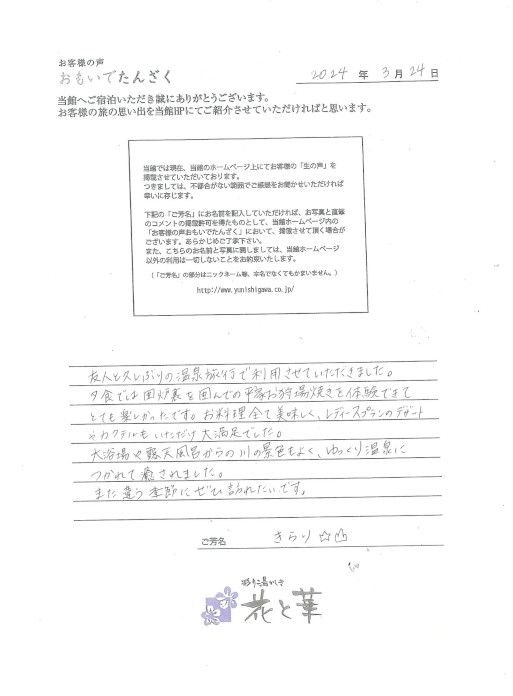 お客様の声
おもいでたんざく
2024 年 3 月 24 日
当館へご宿泊いただき誠にありがとうございます。
お客様の旅の思い出を当館HPにてご紹介させていただければと思います。
当館では現在、当館のホームページ上にてお客様の「生の声」を
掲載させていただいております。
つきましては、不都合がない範囲でご感想をお聞かせいただければ
幸いに存じます。
下記の「ご芳名」にお名前を記入していただければ、お写真と直筆
のコメントの掲載許可を得たものとして、当館ホームページ内の
「お客様の声おもいでたんざく」において、掲載させて頂く場合が
ございます。あらかじめご了承下さい。
また、こちらのお名前と写真に関しましては、当館ホームページ
以外の利用は一切しないことをお約束いたします。
(「ご芳名」の部分はニックネーム等、本名でなくてもかまいません。)
http://www.yunishigawa.co.jp/
友人と久しぶりの温泉旅行で利用させていただきました。
夕食では囲炉裏を囲んでの平家お狩場焼きを体験できて
とても楽しかったです。お料理全て美味しく、レディースプランのデザート
やカクテルもいただけ大満足でした。
大浴場や露天風呂からの川の景色もよく、ゆっくり温泉に
つかれて癒されました。
また違う季節にぜひ訪れたいです。
ご芳名 きらり☆
花と華